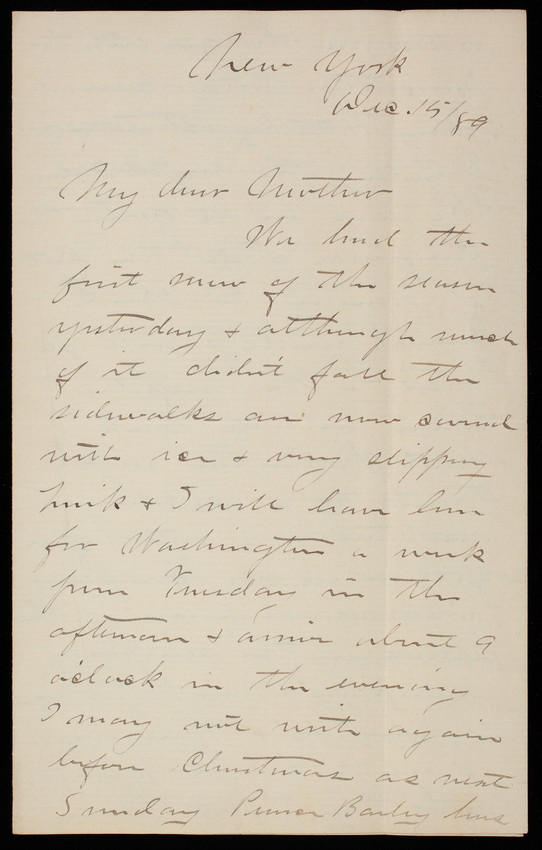 New York
Dec. 15/89
My dear Mother
We had the
first snow of the season
yesterday & although much
of it didn't fall the
sidewalks are now covered
with ice & very slippery
& I will leave here
for Washington a week
from Tuesday in the
afternoon & arrive about 9
o'clock in the evening
I may not write again
before Christmas as next
Sunday Pierce Bailey has